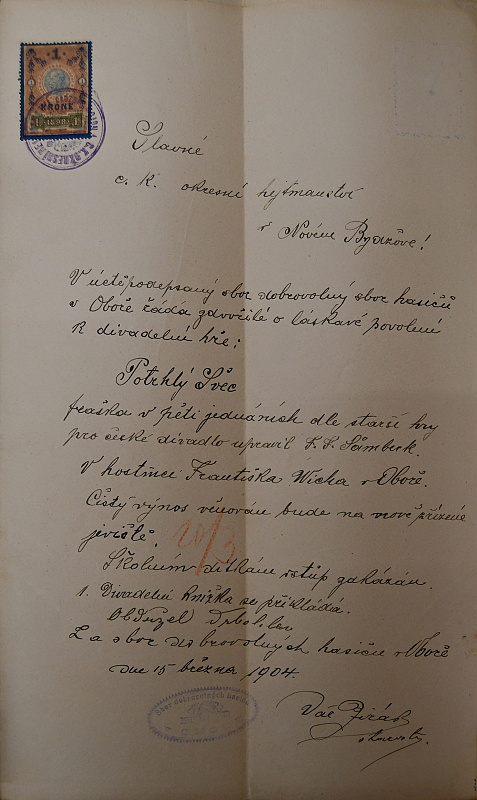 1
KRONE
1 1898 1
Slavné
c. k. okresní hejtmanství
v Novém Bydžově!
V úctě podepsaný sbor dobrovolný sbor hasičů
v Oboře žádá zdvořilé o láskavé povolení
k divadelní hře:
Potrhlý Švec
fraška v pěti jednáních dle starší hry
pro české divadlo upravil F. F. Šamberk.
V hostinci Františka Wícha v Oboře.
Čistý výnos věnován bude na nově zřízené
jeviště.
20/3
Školním dítkám vstup zakázán.
1. Divadelní knížka se přikládá.
Obdržel
Za sbor dobrovolných hasičů v Oboře
dne 15 března 1904.
Sbor dobrovolných hasičů
Vác
starosta.